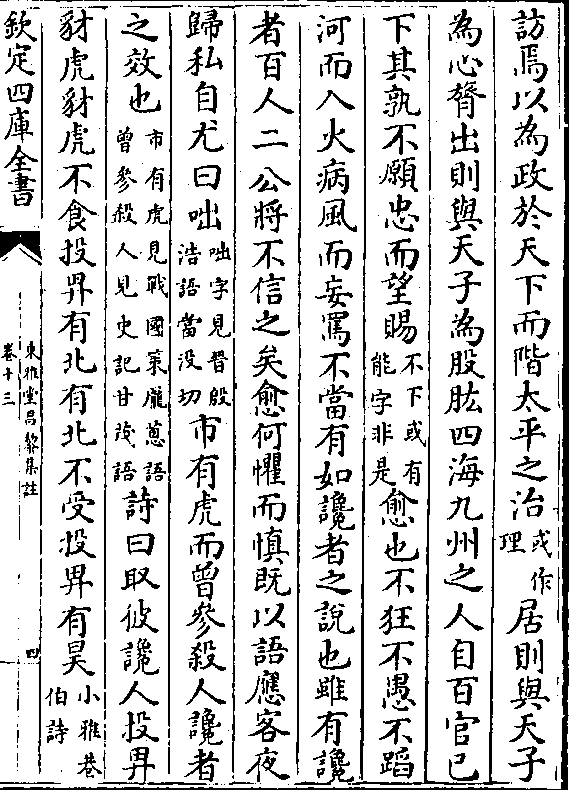 訪焉以為政於天下而階太平之治或作理居則與天子
為心膂出則與天子為股肱四海九州之人自百官已
下其孰不願忠而望賜不下或有能字非是愈也不狂不愚不蹈
河而入火病風而妄罵不當有如讒者之說也雖有讒
者百人二公將不信之矣愈何懼而慎既以語應客夜
歸私自尤曰咄咄字見晉殷浩語當沒切市有虎而曾參殺人讒者
之效也市有虎見戰國策龐蔥語曾參殺人見史記甘茂語詩曰取彼讒人投畀
豺虎豺虎不食投畀有北有北不受投畀有昊小雅巷伯詩
欽定四庫全書
東雅堂昌黎集註
卷十三
四